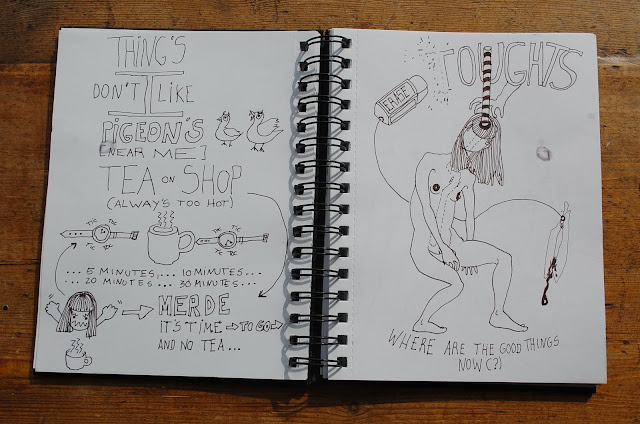 THING'S
I
DON'T LIKE
PIGEON'S
[NEAR ME]
TEA ON SHOP
(ALWAY'S TOO HOT)
TIC TAC
TIC TAC
... 5 MINUTES, ... 10 MINUTES...
... 20 MINUTES ... 30 MINUTES...
MERDE
IT'S TIME TO GO
AND NO TEA...
TOUGHTS
ERASE
WHERE ARE THE GOOD THINGS
NOW (?)